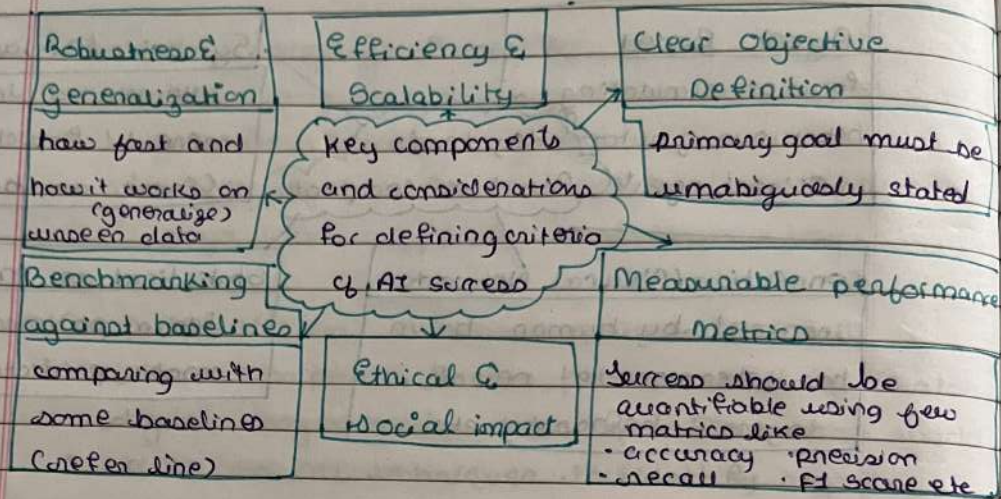 Robustness &
Generalization
how fast and
how it works on
(generalize)
unseen data
Efficiency &
Scalability
Clear Objective
Definition
primary goal must be
umabiguously stated
Key components
and considerations
for defining criteria
of AI success
Benchmarking
against baselines
comparing with
some baselines
(refer line)
Ethical &
social impact
Measurable performance
Metrics
Success should be
quantifiable using few
matrics like
· accuracy · precision
· recall · F1 score etc